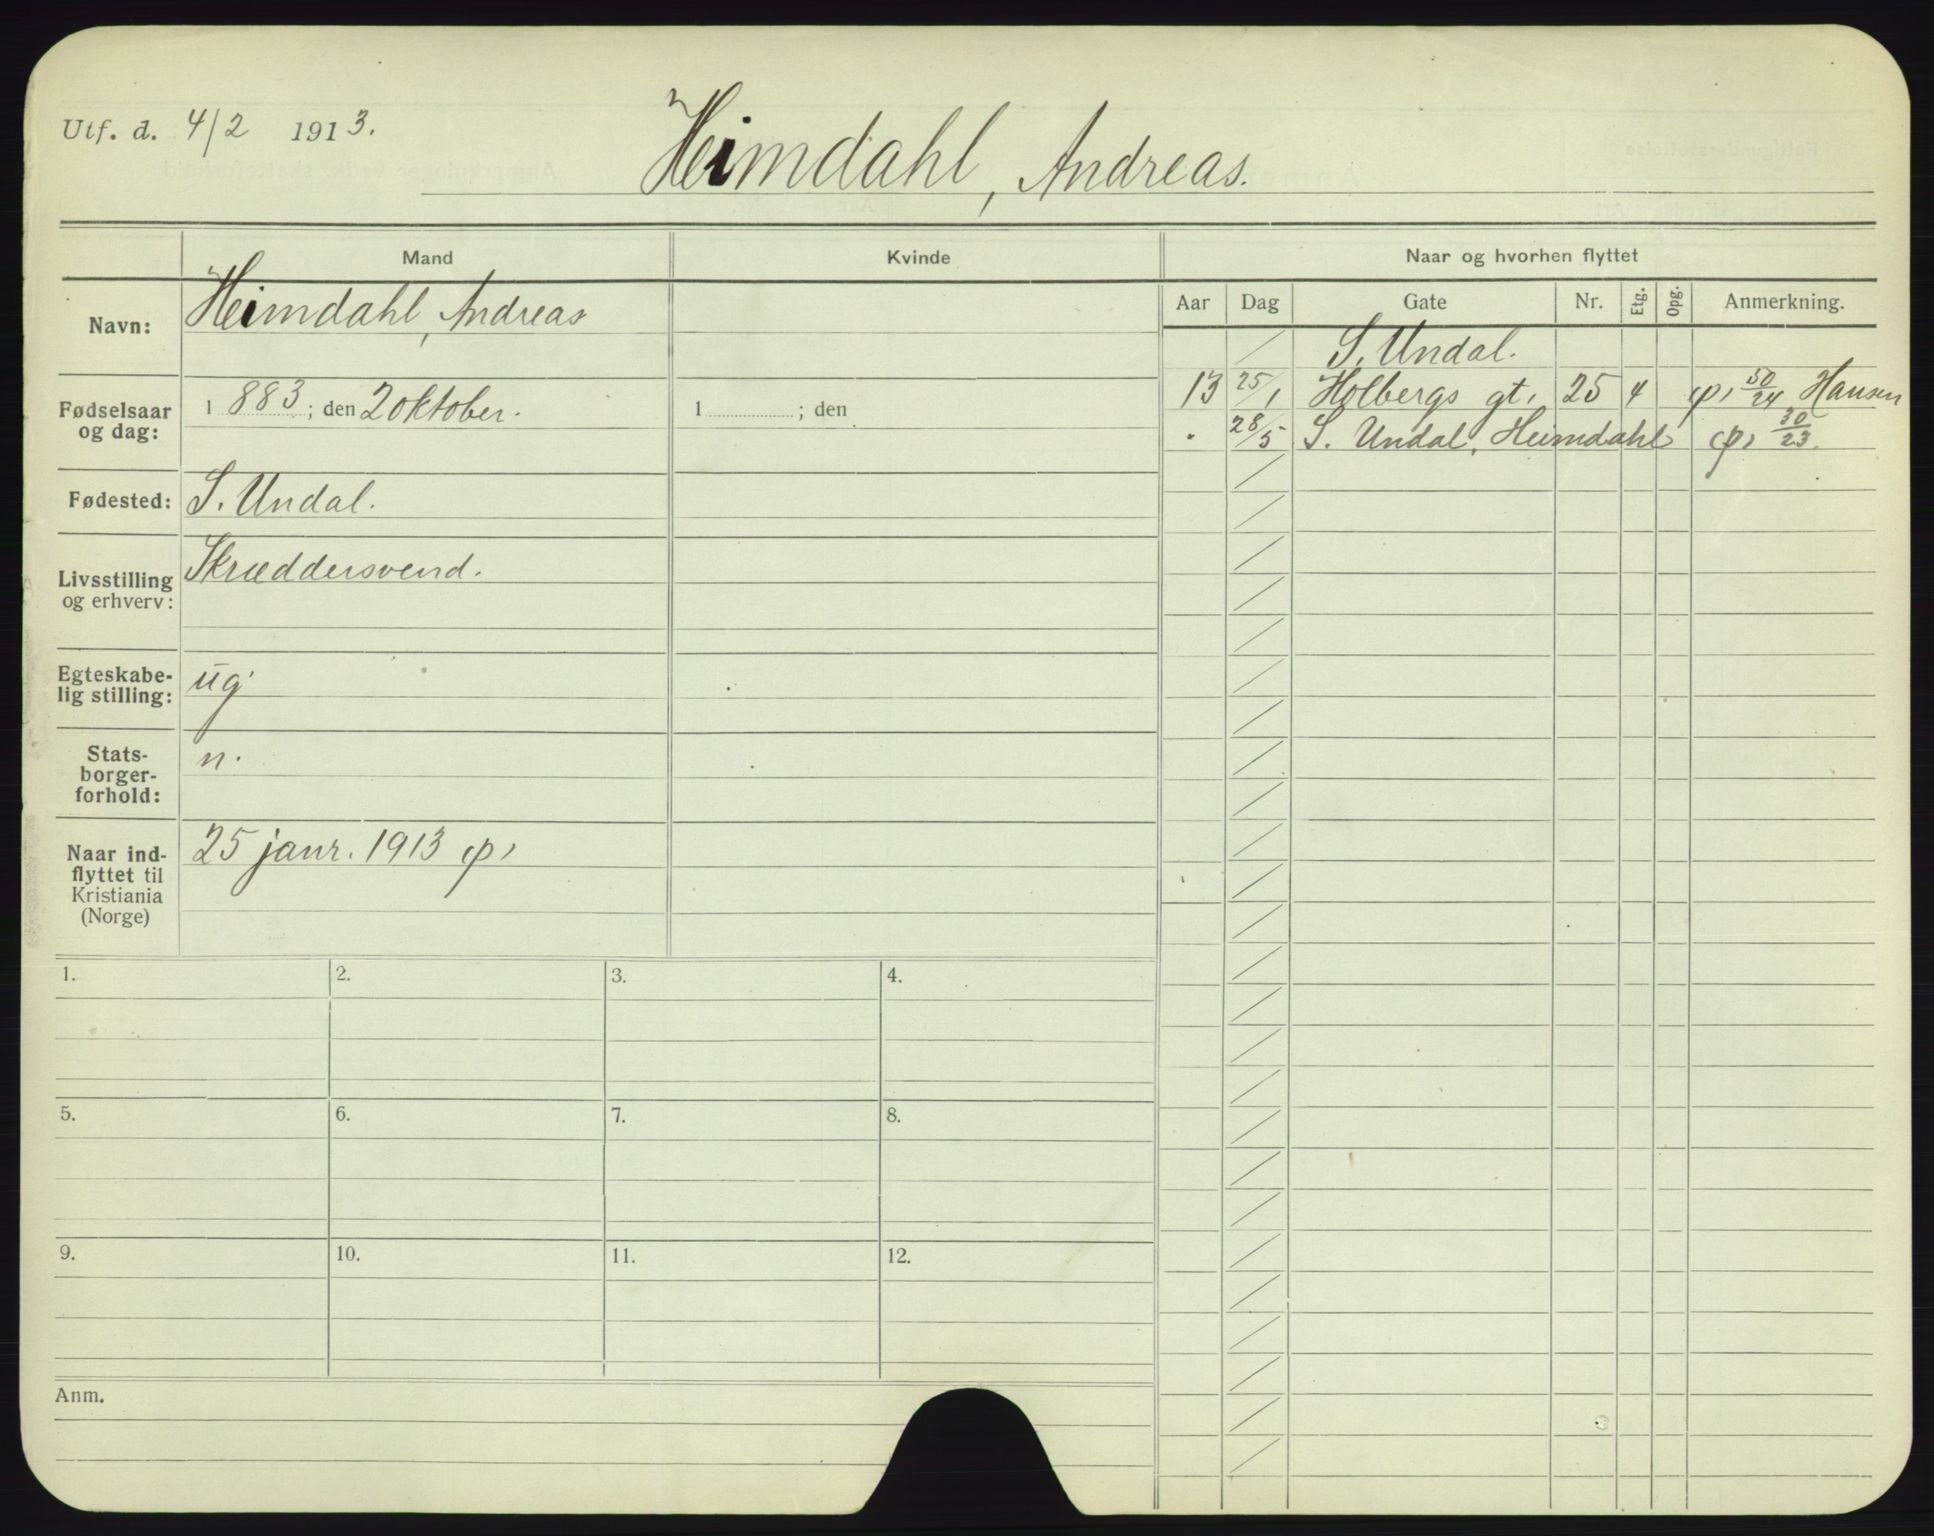 Utf. d. 4/2 1913.
Heimdahl, Andreas.
Mand
Kvinde
Naar og hvorhen flyttet
Navn:
Heimdahl, Andreas
Fødselsaar og dag:
1883; den 2 oktober.
1 ; den
Fødested:
S. Undal.
Livsstilling og erhverv:
Skræddersvend.
Egteskabe-
lig stilling:
ug
Stats-
borger-
forhold:
n.
Naar ind-
flyttet til
Kristiania
(Norge)
25 janr. 1913
Aar Dag Gate Nr. Etg. Opg. Anmerkning.
S. Undal.
13 25/1 Holbergs gt. 25 4 50/24 Hansen
" 28/5 S. Undal, Heimdahl 30/23.
1. 2. 3. 4.
5. 6. 7. 8.
9. 10. 11. 12.
Anm.